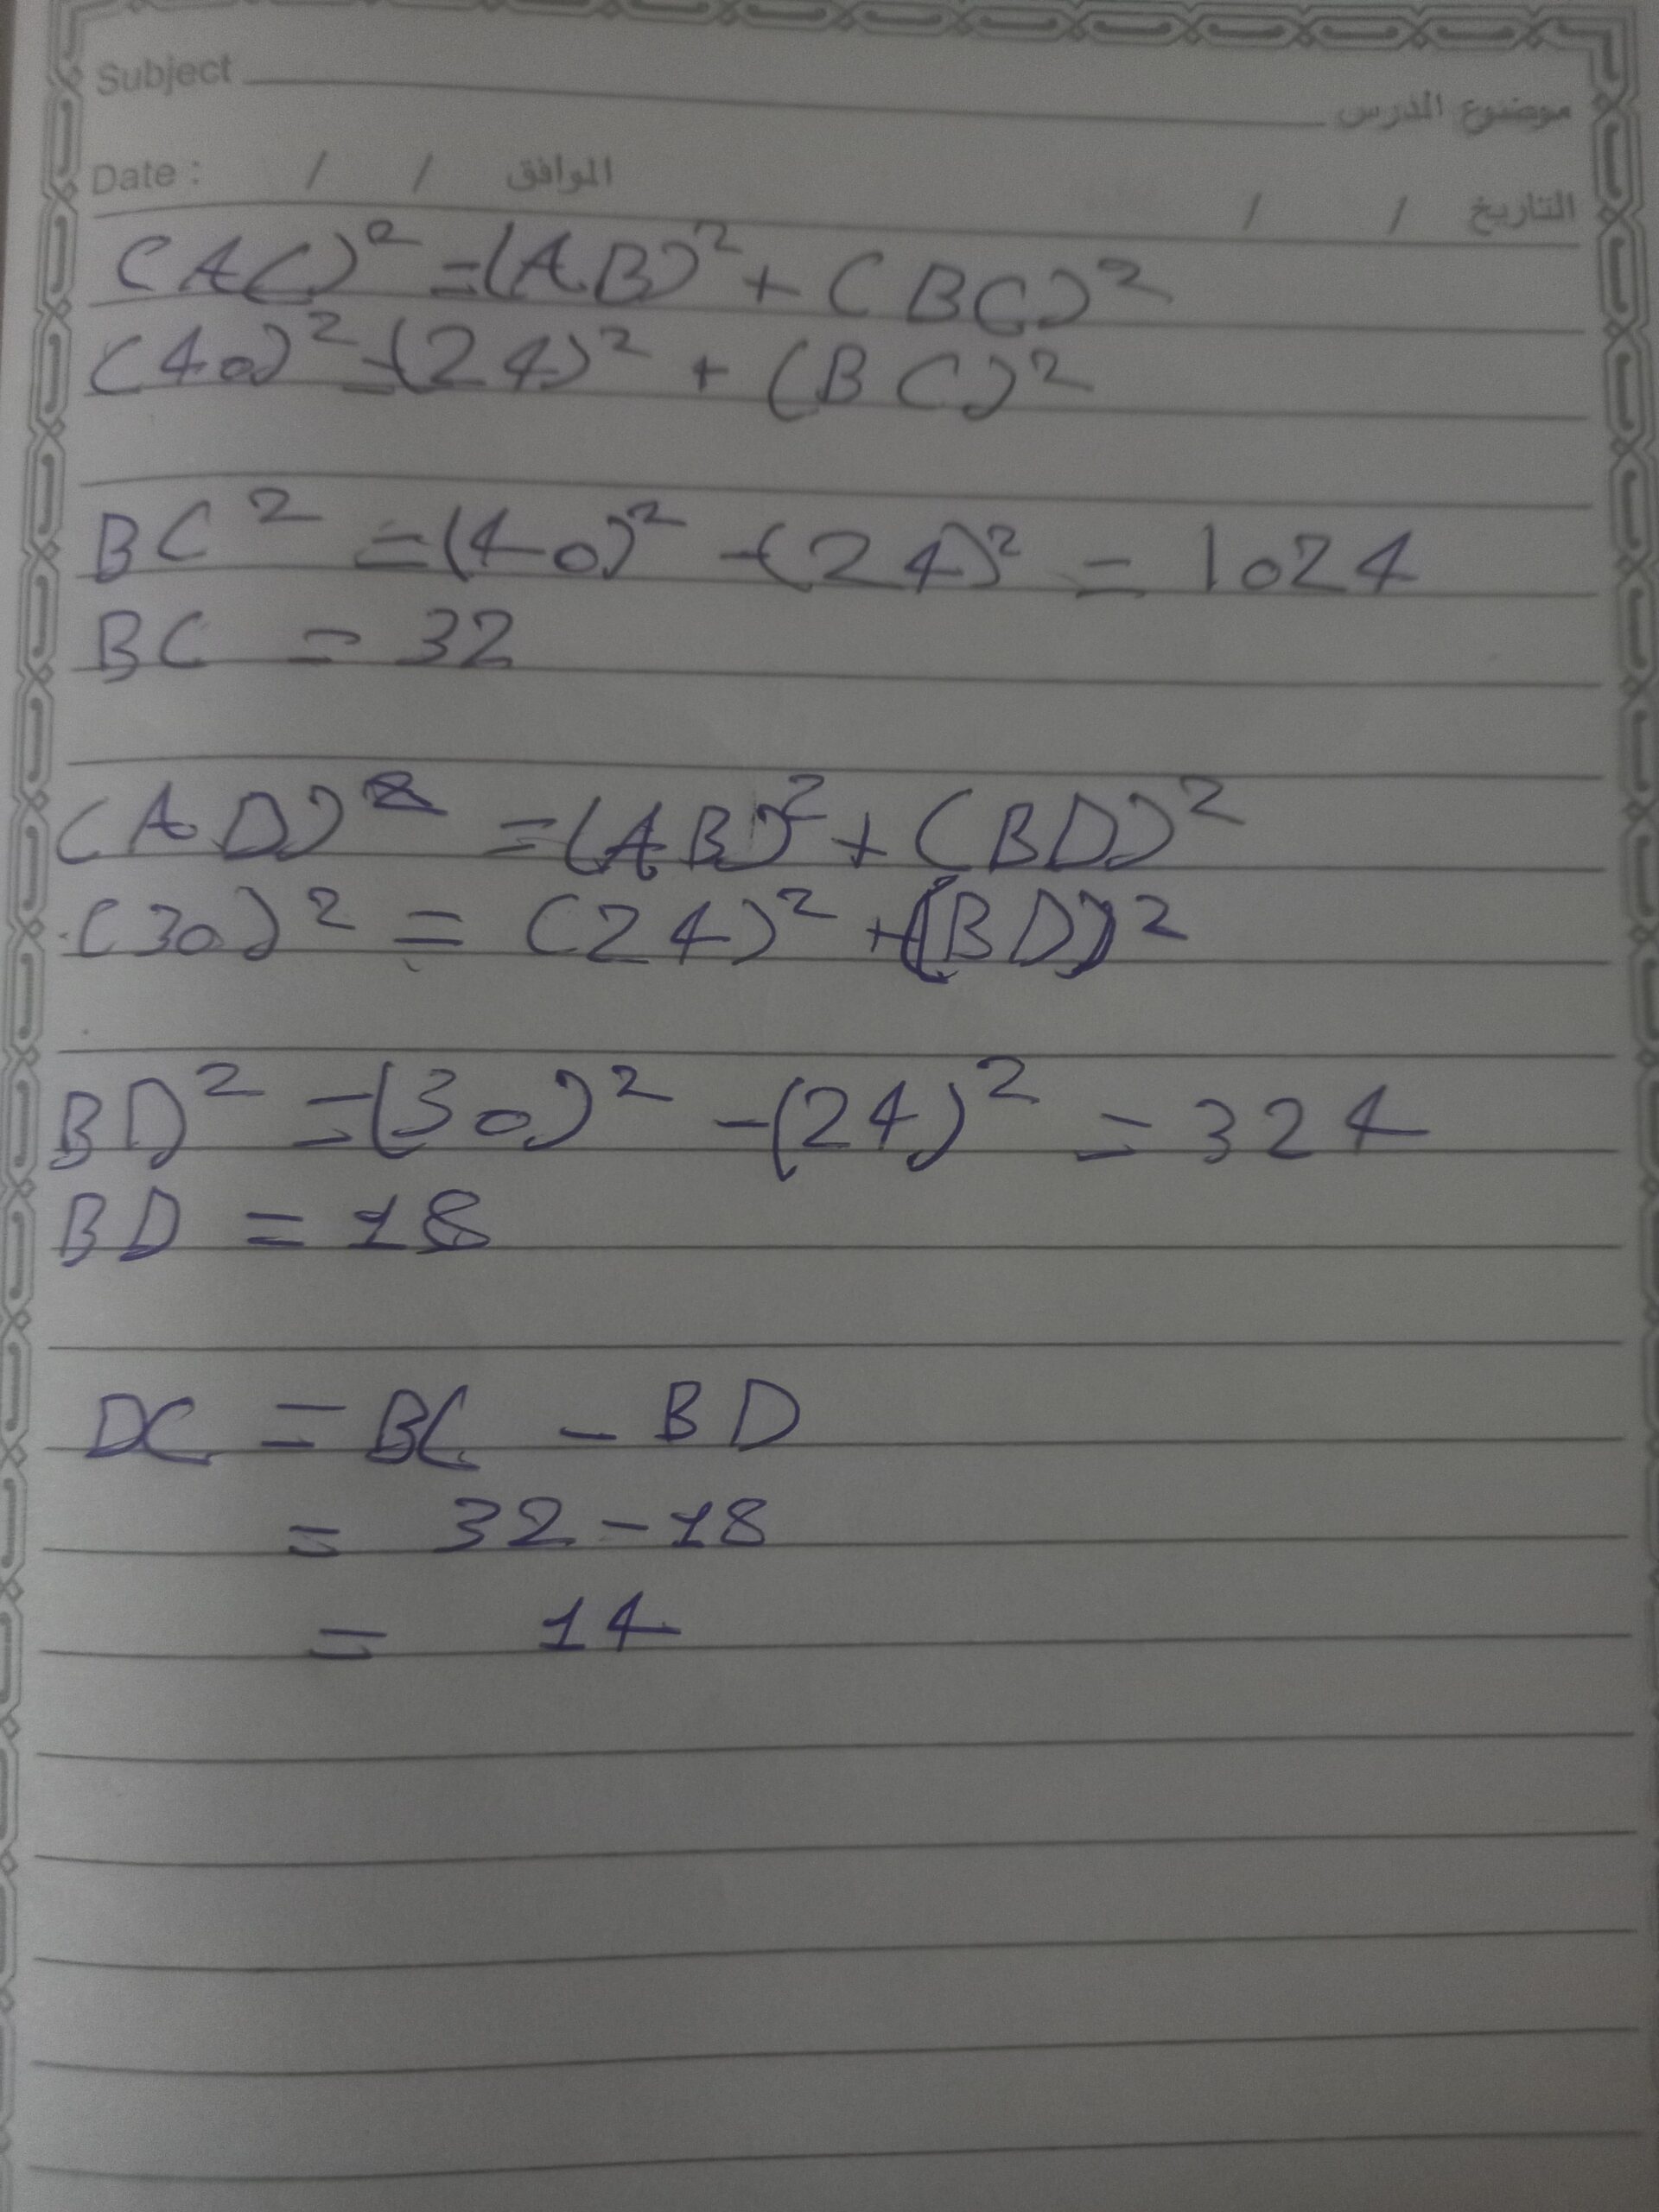 Subject
موضوع الدرس
Date : / / الموافق
التاريخ / /
(AC)² = (AB)² + (BC)²
(40)² = (24)² + (BC)²
BC² = (40)² - (24)² = 1024
BC = 32
(AD)² = (AB)² + (BD)²
(30)² = (24)² + (BD)²
BD² = (30)² - (24)² = 324
BD = 18
DC = BC - BD
= 32 - 18
= 14